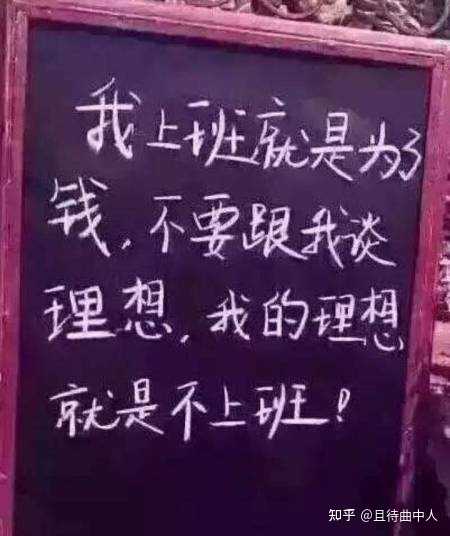 我上班就是为了
钱，不要跟我谈
理想，我的理想
就是不上班！
知乎 @且待曲中人